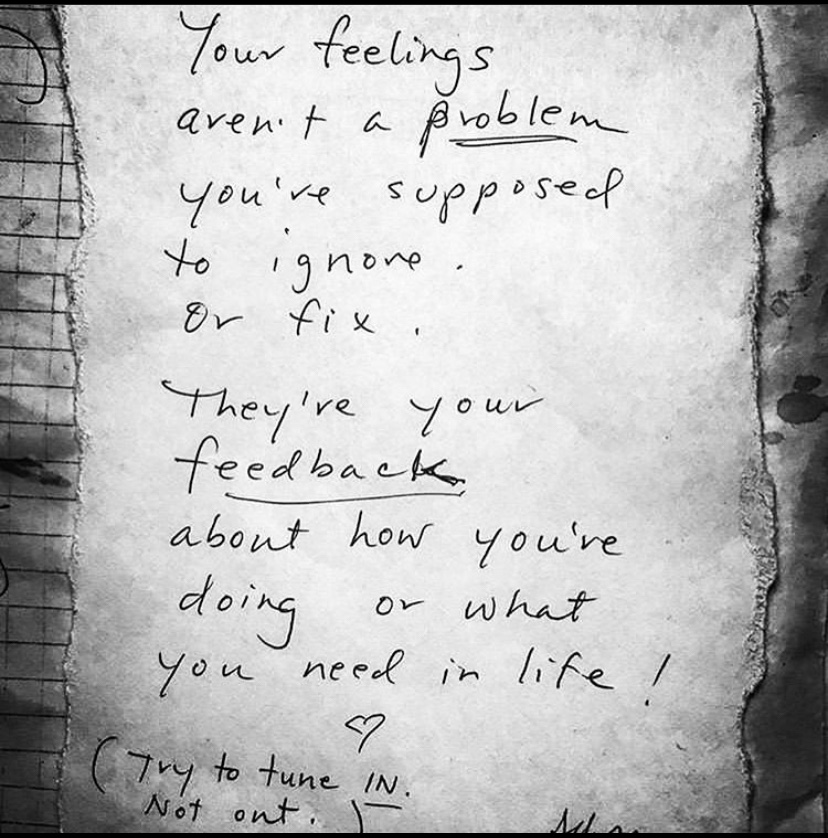 Your feelings
aren't a problem
you've supposed
to ignore.
Or fix.
They're your
feedback
about how you're
doing or what
you need in life!
♡
(Try to tune IN.
Not out.)